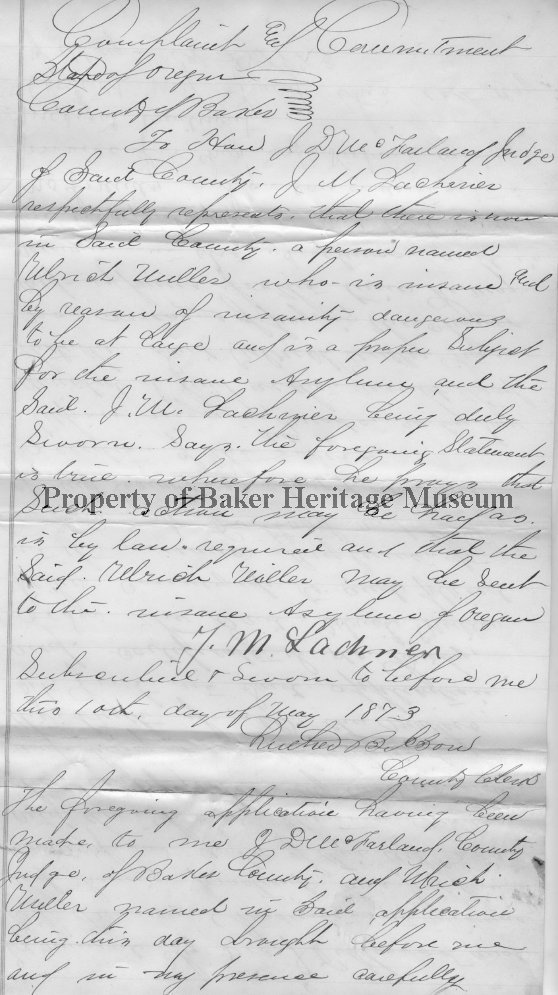 Complaint and Commitment
State of Oregon
County of Baker
To Hon J D McFarland Judge
of Said County. J M Lachnier
respectfully represents. that there is now
in Said County. a person named
Ulrich Willer who is insane and
by reason of insanity dangerous
to be at large and is a proper Subject
for the insane Asylum and the
Said. J. M. Lachnier being duly
Sworn. Says. the foregoing Statement
is true. wherefore he prays that
Such action may be had as.
Property of Baker Heritage Museum
is by law. required and that the
Said. Ulrich Willer may be Sent
to the. insane Asylum of Oregon
J. M. Lachner
Subscribed & Sworn to before me
this 10th. day of May 1873
County Clerk
The foregoing application having been
made. to me J D McFarland. County
Judge. of Baker County. and Ulrich
Willer named in Said application
being this day brought before me
and in my presence carefully